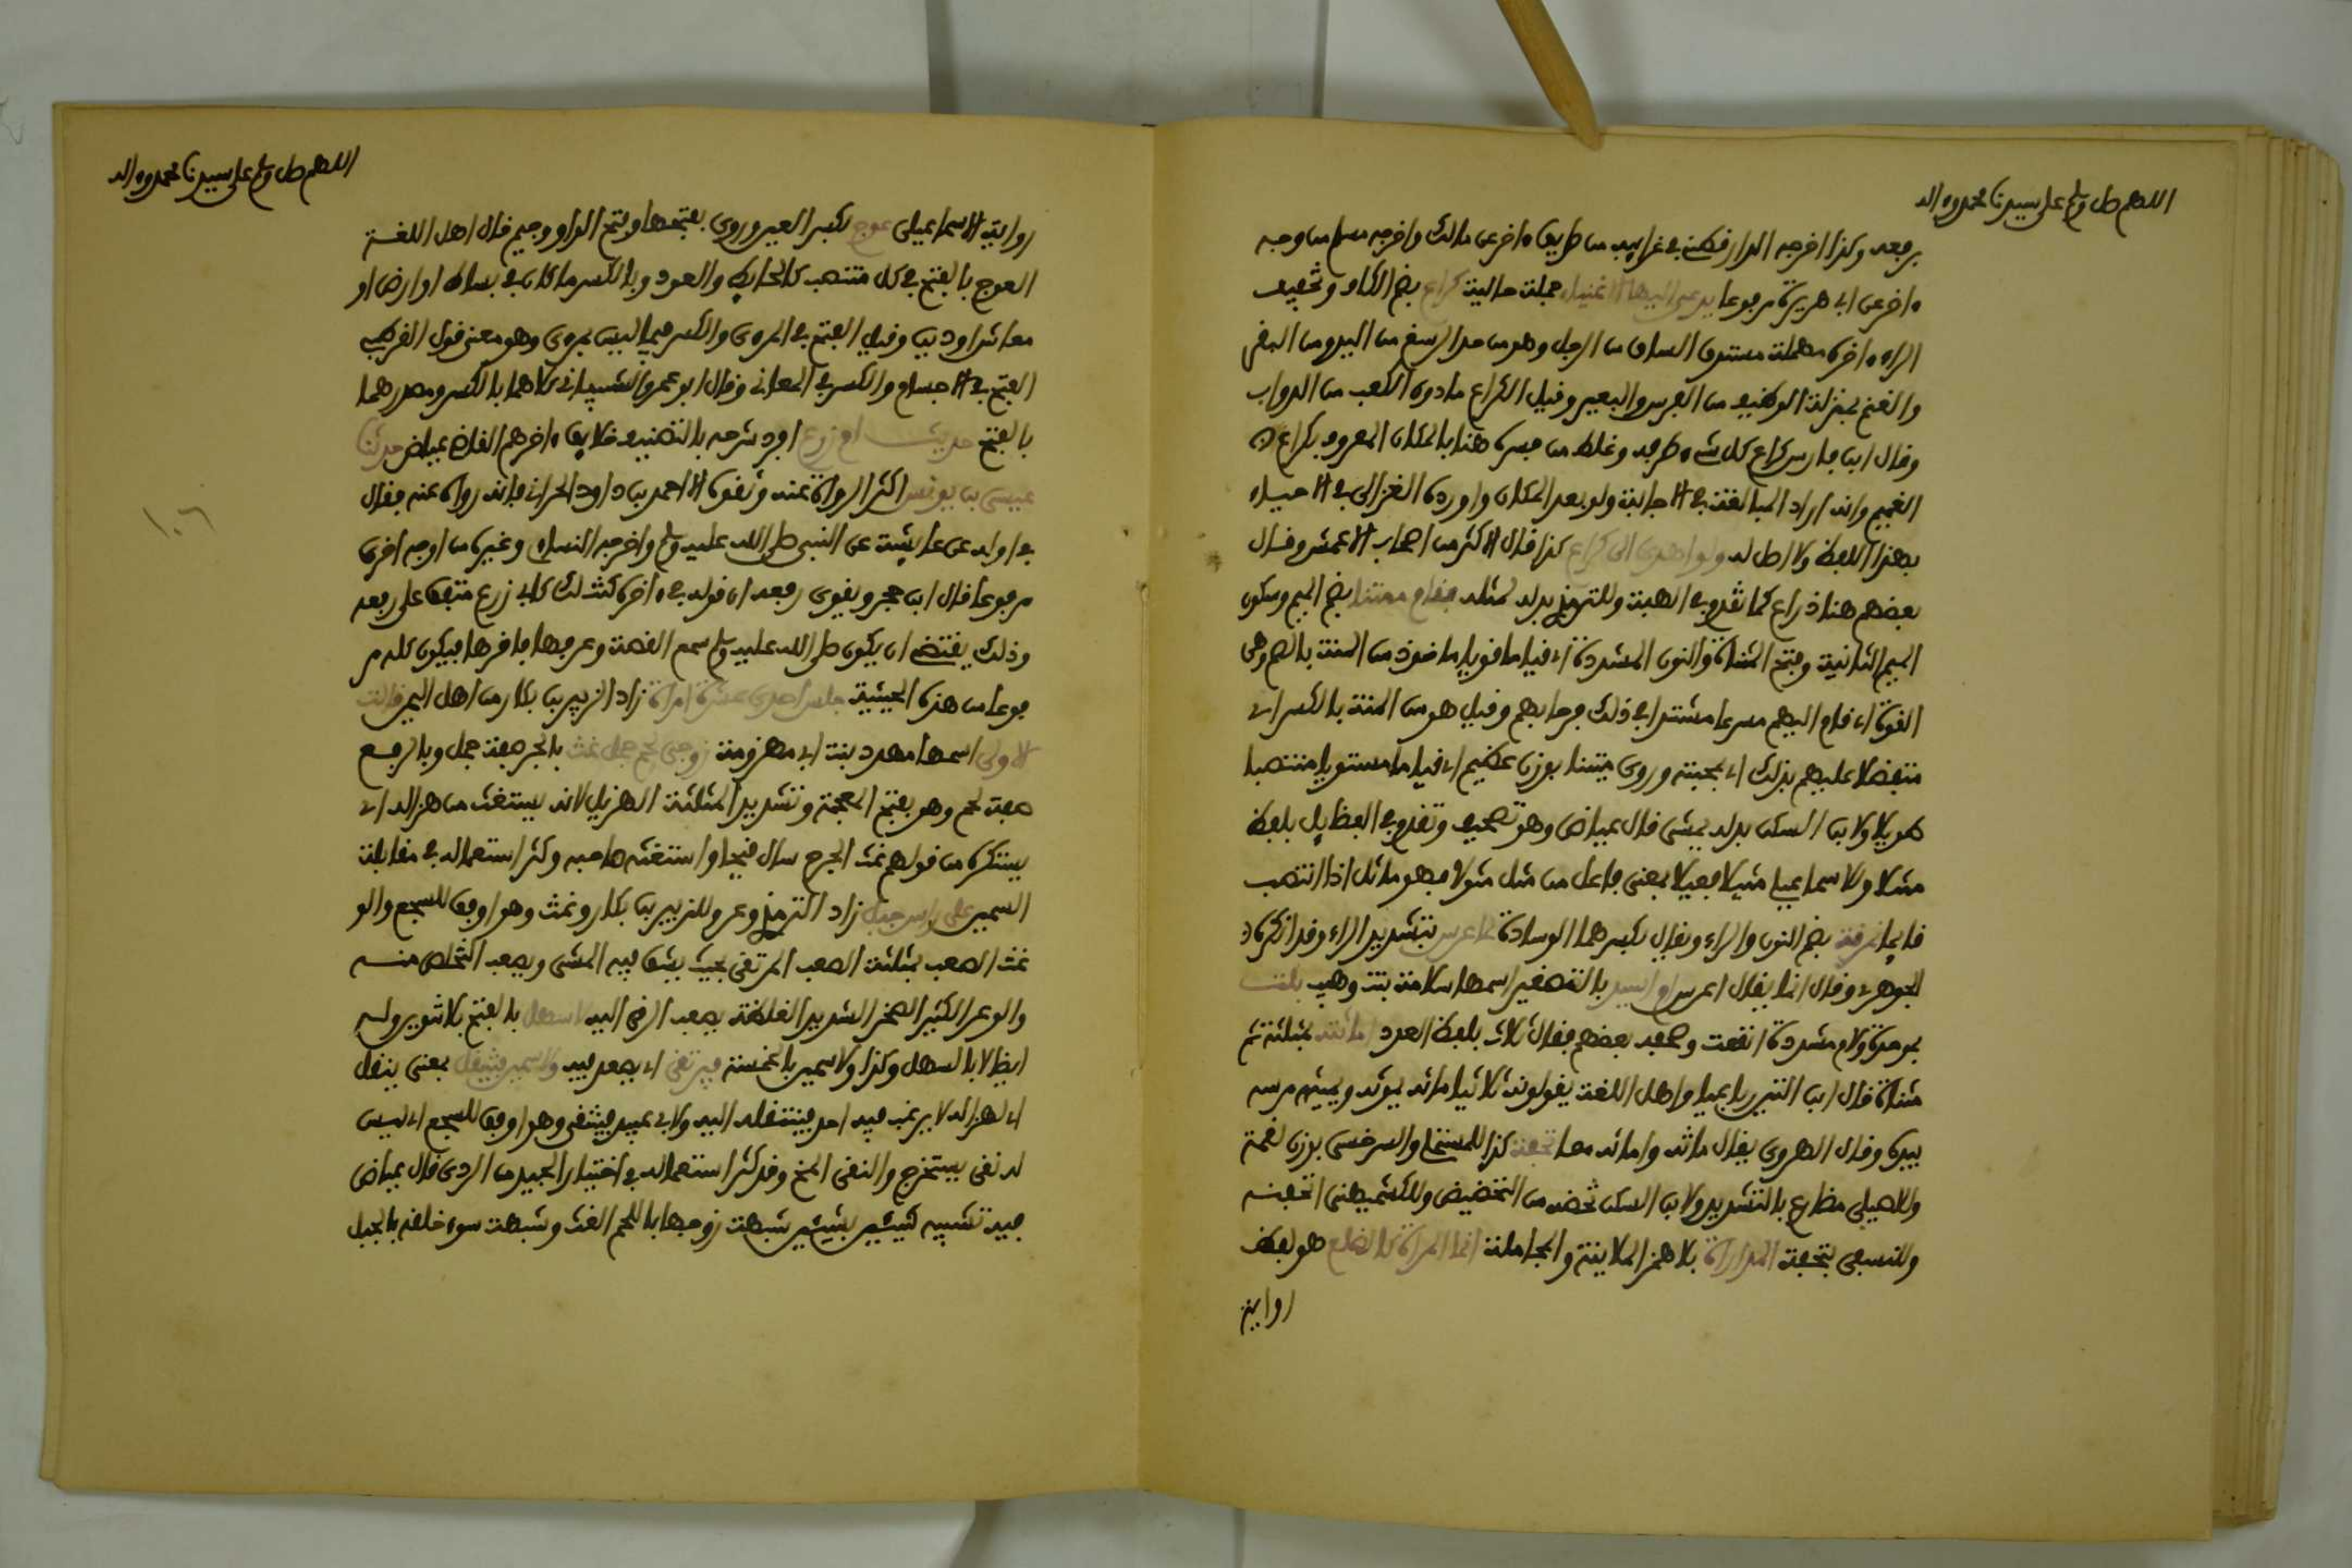 اللهم صل وسلم على سيدنا محمد وءاله
برفعه وكذا اخرجه الدارقطني في غرايب من طريق ءاخر عن مالك واخرجه مسلم من وجه
ءاخر عن ابي هريرة مرفوعا يدعى اليها الاغنياء جملة حالية كراع بضم الكاف وتخفيف
الراء ءاخره مهملة مستدق الساق من الرجل وهو من حد الرسغ من اليد وهو من البقر
والغنم بمنزلة الوظيف من الفرس والبعير وقيل الكراع ما دون الكعب من الدواب
وقال ابن فارس كراع كل شيء طرفه وغلط من فسره هنا بالمكان المعروف بكراع
الغميم وانه اراد المبالغة في الاجابة ولو بعد المكان واورده الغزالي في الاحياء
بهذا اللفظ ولا اصل له ولو اهدي الى كراع كذا قال الاكثر من اصحاب الاعمش وقال
بعضهم هنا ذراع كما تقدم في الهبة وللترمذي بدله مثله فقام ممتنا بضم الميم وسكون
الميم الثانية وفتح المثناة والنون المشددة اي قياما قويا ماخوذ من المنة بالضم وهي
القوة اي قام اليهم مسرعا مشتدا في ذلك فرحا بهم وقيل هو من المنة بالكسر اي
متفضلا عليهم بذلك اي بمحبته وروي متينا بوزن عظيم اي قياما مستويا منتصبا
طويلا ولابن السكن بدله يمشي قال عياض وهو تصحيف وتقدم في الفظايل بلفظ
مثلا وللاسماعيلي مثيلا فعيلا بمعنى فاعل من مثل مثولا فهو ماثل اذا انتصب
قايما نمرقة بضم النون والراء ويقال بكسرهما الوسادة لما عرس بتشديد الراء وقد انكره
الجوهري وقال انما يقال اعرس ام اسيد بالتصغير اسمها سلامة بنت وهيب بلت
بموحدة ولام مشددة انقعت وصحفه بعضهم فقال ثلاث بلفظ العدد اماثته بمثلثة ثم
مثناة قال ابن التين رباعيا واهل اللغة يقولونه ثلاثيا ماثه يموثه ويميثه مرسه
بيده وقال الهروي يقال ماثه واماثه معا تحفة كذا للمستملي والسرخسي بوزن لقمة
وللاصيلي مضارع بالتشديد ولابن السكن تخصه من التخصيص وللكشميهني اتحفته
وللنسفي بتحفة المداراة بلا همز الملاينة والمجاملة انما المراة كالضلع هو لفظ
رواية
اللهم صل وسلم على سيدنا محمد وءاله
رواية الاسماعيلي عوج بكسر العين وروي بفتحها وفتح الواو وجيم قال اهل اللغة
العوج بالفتح في كل منتصب كالحايط والعود وبالكسر ما كان في بساط او ارض او
معاش او دين وقيل الفتح في المرءى والكسر فيما ليس بمرءى وهو معنى قول القرطبي
الفتح في الاجسام والكسر في المعاني وقال ابو عمرو الشيباني كلاهما بالكسر ومصدرهما
بالفتح حديث ام زرع افرد شرحه بالتصنيف خلايق ءاخرهم القاضي عياض حدثنا
عيسى بن يونس اكثر الرواة عنه وثقوه الا احمد بن داود الحراني فانه رواه عنه فقال
في اوله عن عايشة عن النبي صلى الله عليه وسلم واخرجه النساءي وغيره من اوجه اخرى
مرفوعا قال ابن حجر ويقوي رفعه ان قوله في ءاخره كنت لك كابي زرع متفق على رفعه
وذلك يقتضي ان يكون صلى الله عليه وسلم سمع القصة وعرفها فاقرها فيكون كله مر
فوعا من هذه الحيثية جلس احدى عشرة امراة زاد الزبير بن بكار من اهل اليمن قالت
الاولى اسمها مهدد بنت ابي مهزومة زوجي لحم جمل غث بالجر صفة جمل وبالرفع
صفة لحم وهو بفتح المعجمة وتشديد المثلثة الهزيل لانه يستغث من هزاله اي
يستكره من قولهم غث الجرح سال قيحا واستغثه صاحبه وكثر استعماله في مقابلة
السمين على راس جبل زاد الترمذي وعر وللزبير بن بكار وعث وهو اوفق للسجع والو
عث الصعب بمثلثة الصعب المرتقى بحيث يشق فيه المشي ويصعب التخلص منه
والوعر الكثير الصخر الشديد الغلظة يصعب الرقي اليه لا سهل بالفتح بلا تنوين وله
ايظا لا بالسهل وكذا ولا سمين بالخمسة فيرتقى اي يصعد فيه ولا سمين فينتقل بمعنى ينقل
اي لهزاله لا يرغب فيه احد فينتقله اليه ولابي عبيد فينتقى وهو اوفق للسجع اي ليس
له نقي يستخرج والنقي المخ وقد كثر استعماله في اختيار الجيد من الردي قال عياض
فيه تشبيه شيئين بشيئين شبهت زوجها باللحم الغث وشبهت سوء خلقه بالجبل
١٠٦